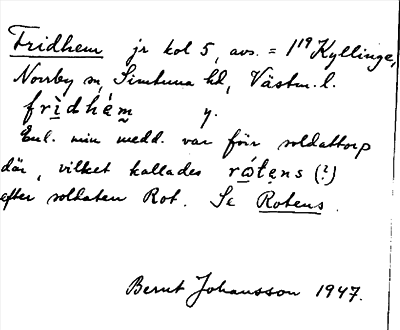 Fridhem jr kol 5, avs. = 1¹⁹ Kyllinge,
Norrby sn, Simtuna hd, Västm. l.
frìdhém y.
Enl. min medd. var förr soldattorp
där, vilket kallades rótens (?)
efter soldaten Rot. Se Rotens.
Bernt Johansson 1947.